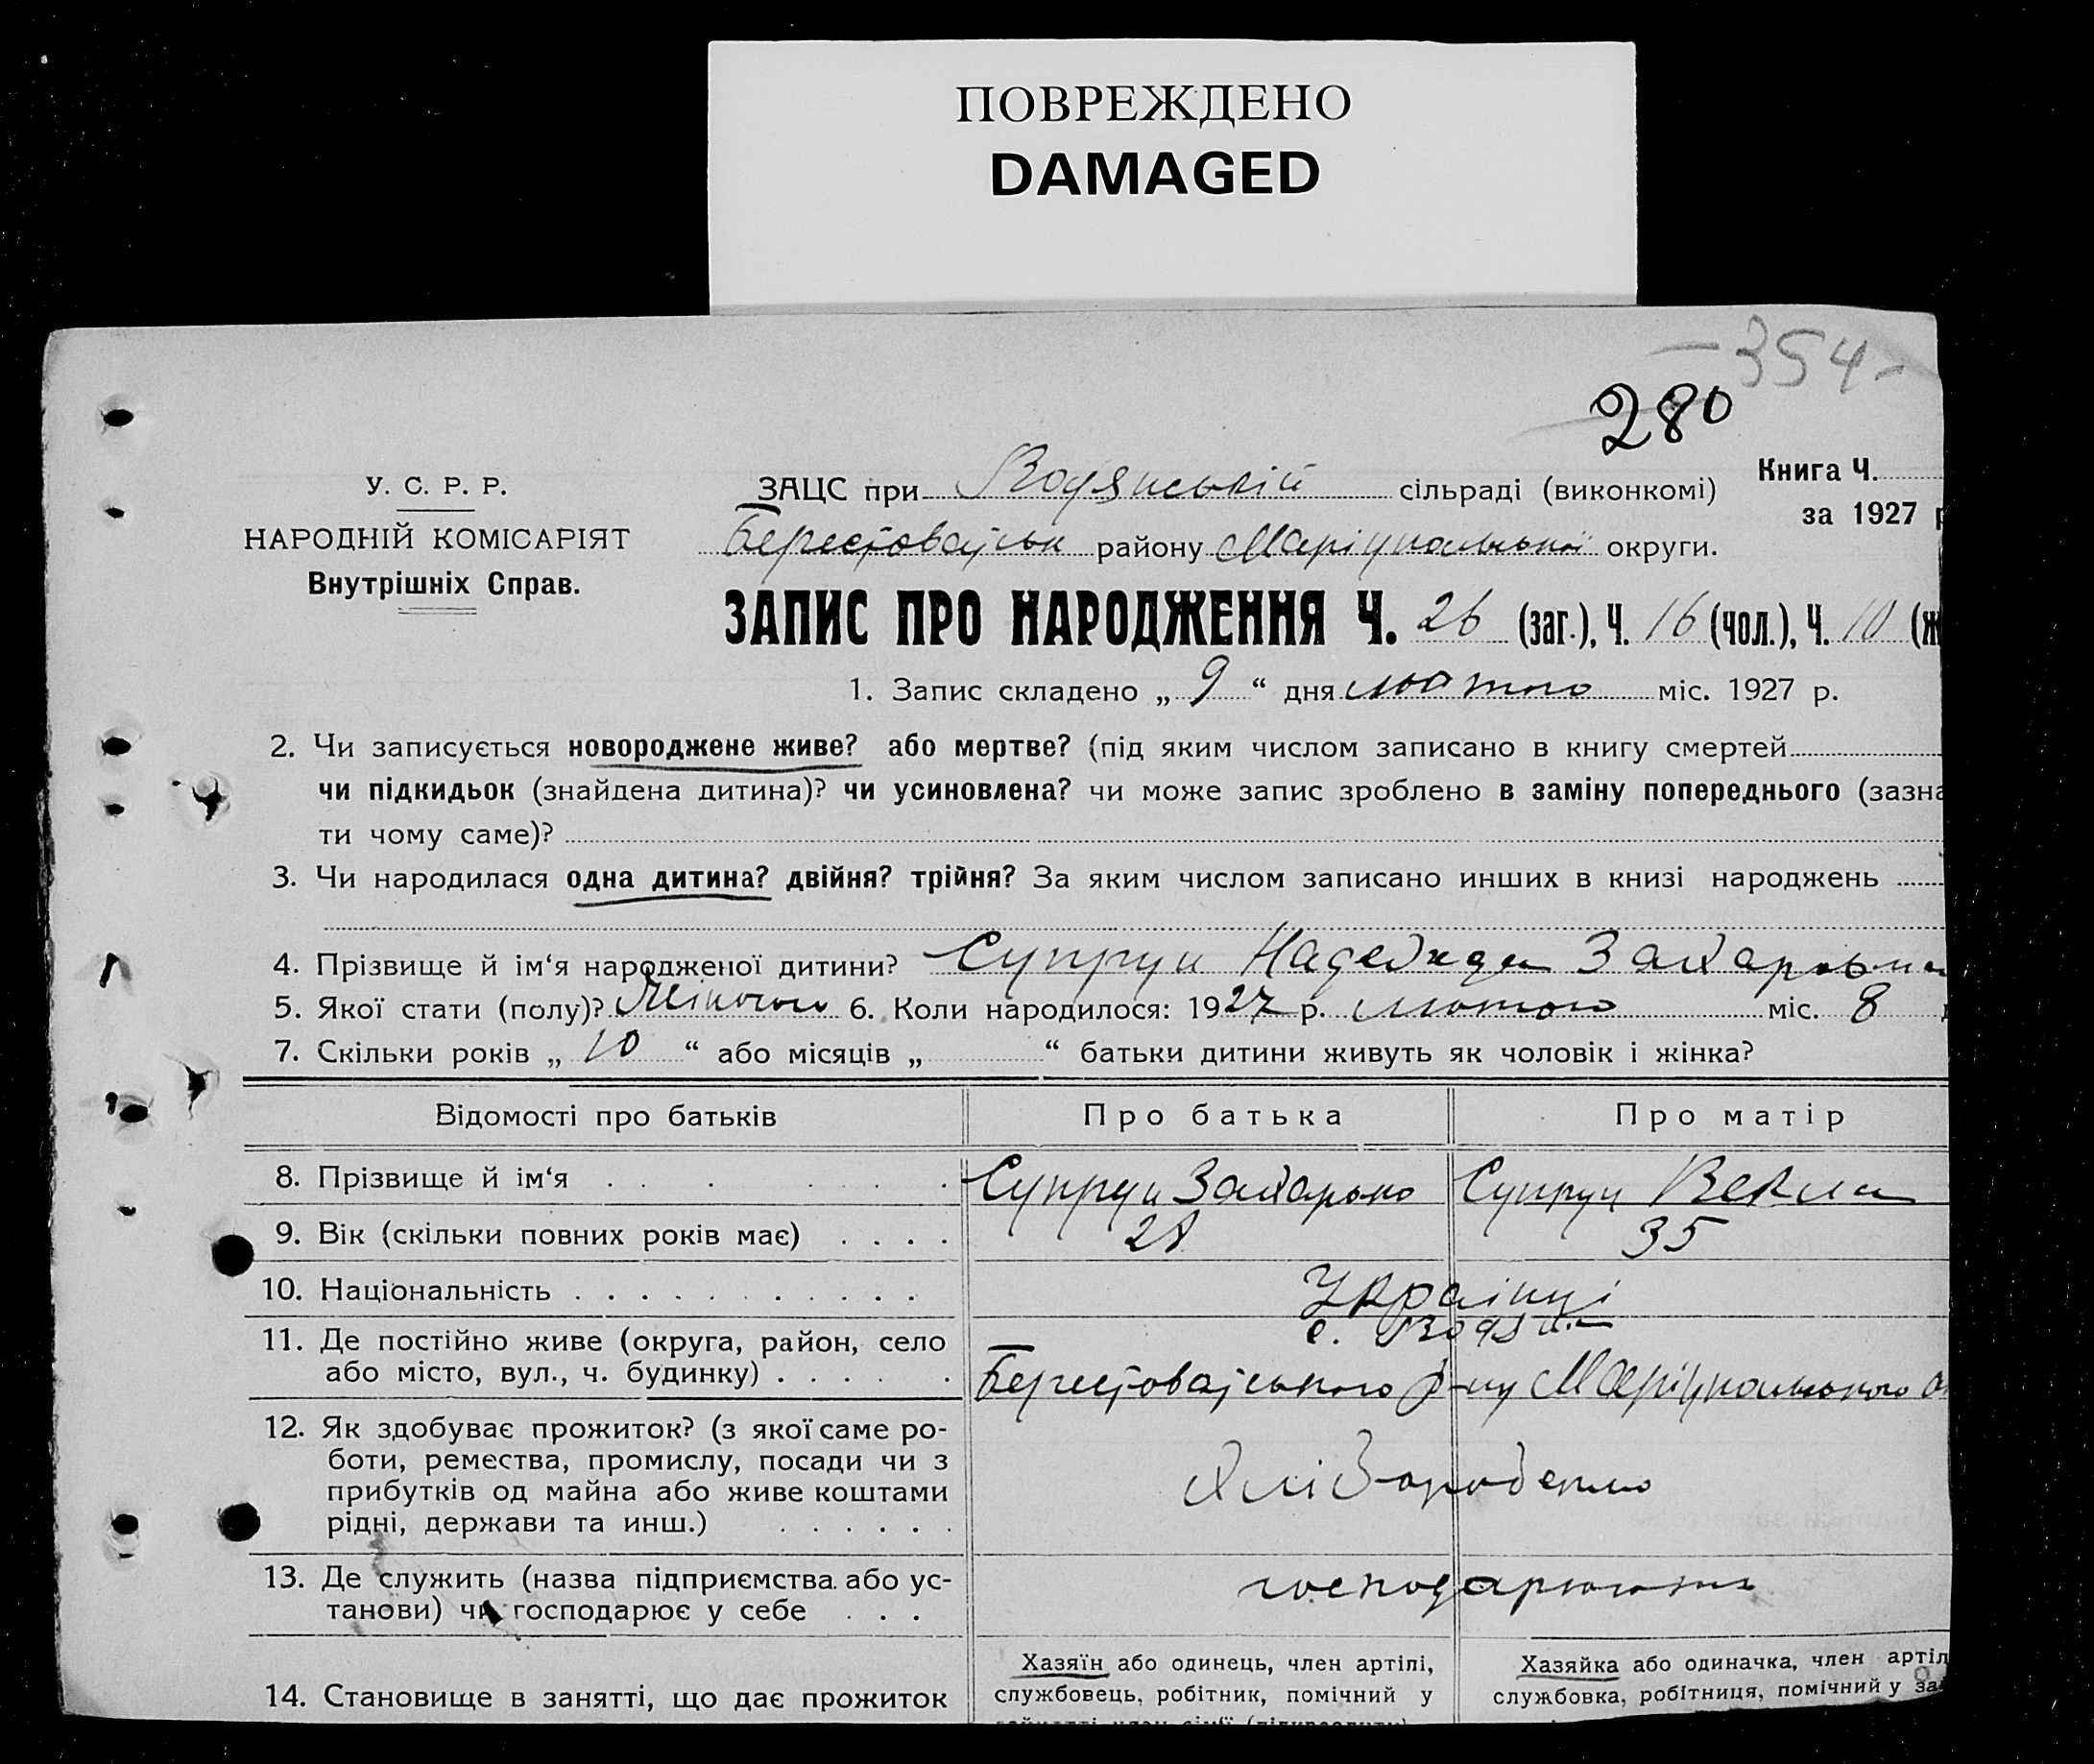 ПОВРЕЖДЕНО
DAMAGED
–354–
280
У. С. Р. Р.
НАРОДНІЙ КОМІСАРІЯТ
Внутрішніх Справ.
ЗАЦС при Водянській сільраді (виконкомі)
Книга Ч.
за 1927 р
Берестоваўськ району Маріупольської округи.
ЗАПИС ПРО НАРОДЖЕННЯ Ч. 26 (заг.), Ч. 16 (чол.), Ч. 10 (ж
1. Запис складено „ 9 “ дня лютого міс. 1927 р.
2. Чи записується новороджене живе? або мертве? (під яким числом записано в книгу смертей
чи підкидьок (знайдена дитина)? чи усиновлена? чи може запис зроблено в заміну попереднього (зазна
ти чому саме)?
3. Чи народилася одна дитина? двійня? трійня? За яким числом записано инших в книзі народжень
4. Прізвище й ім‘я народженої дитини? Супрун Надежда Захаровна
5. Якої стати (полу)? Жіночого 6. Коли народилося: 1927 р. лютого міс. 8
7. Скільки років „ 10 “ або місяців „ “ батьки дитини живуть як чоловік і жінка?
Відомості про батьків Про батька Про матір
8. Прізвище й ім‘я Супрун Захарько Супрун
9. Вік (скільки повних років має) 35
10. Національність Українці
11. Де постійно живе (округа, район, село с. Водян
або місто, вул., ч. будинку) Берестоваўського р-ну Маріупольського о
12. Як здобуває прожиток? (з якої саме ро-
боти, ремества, промислу, посади чи з
прибутків од майна або живе коштами Хліборобство
рідні, держави та инш.)
13. Де служить (назва підприємства або ус- господарюють
танови) чи господарює у себе
Хазяїн або одинець, член артілі, Хазяйка або одиначка, член артіл
14. Становище в занятті, що дає прожиток службовець, робітник, помічний у службовка, робітниця, помічний у за